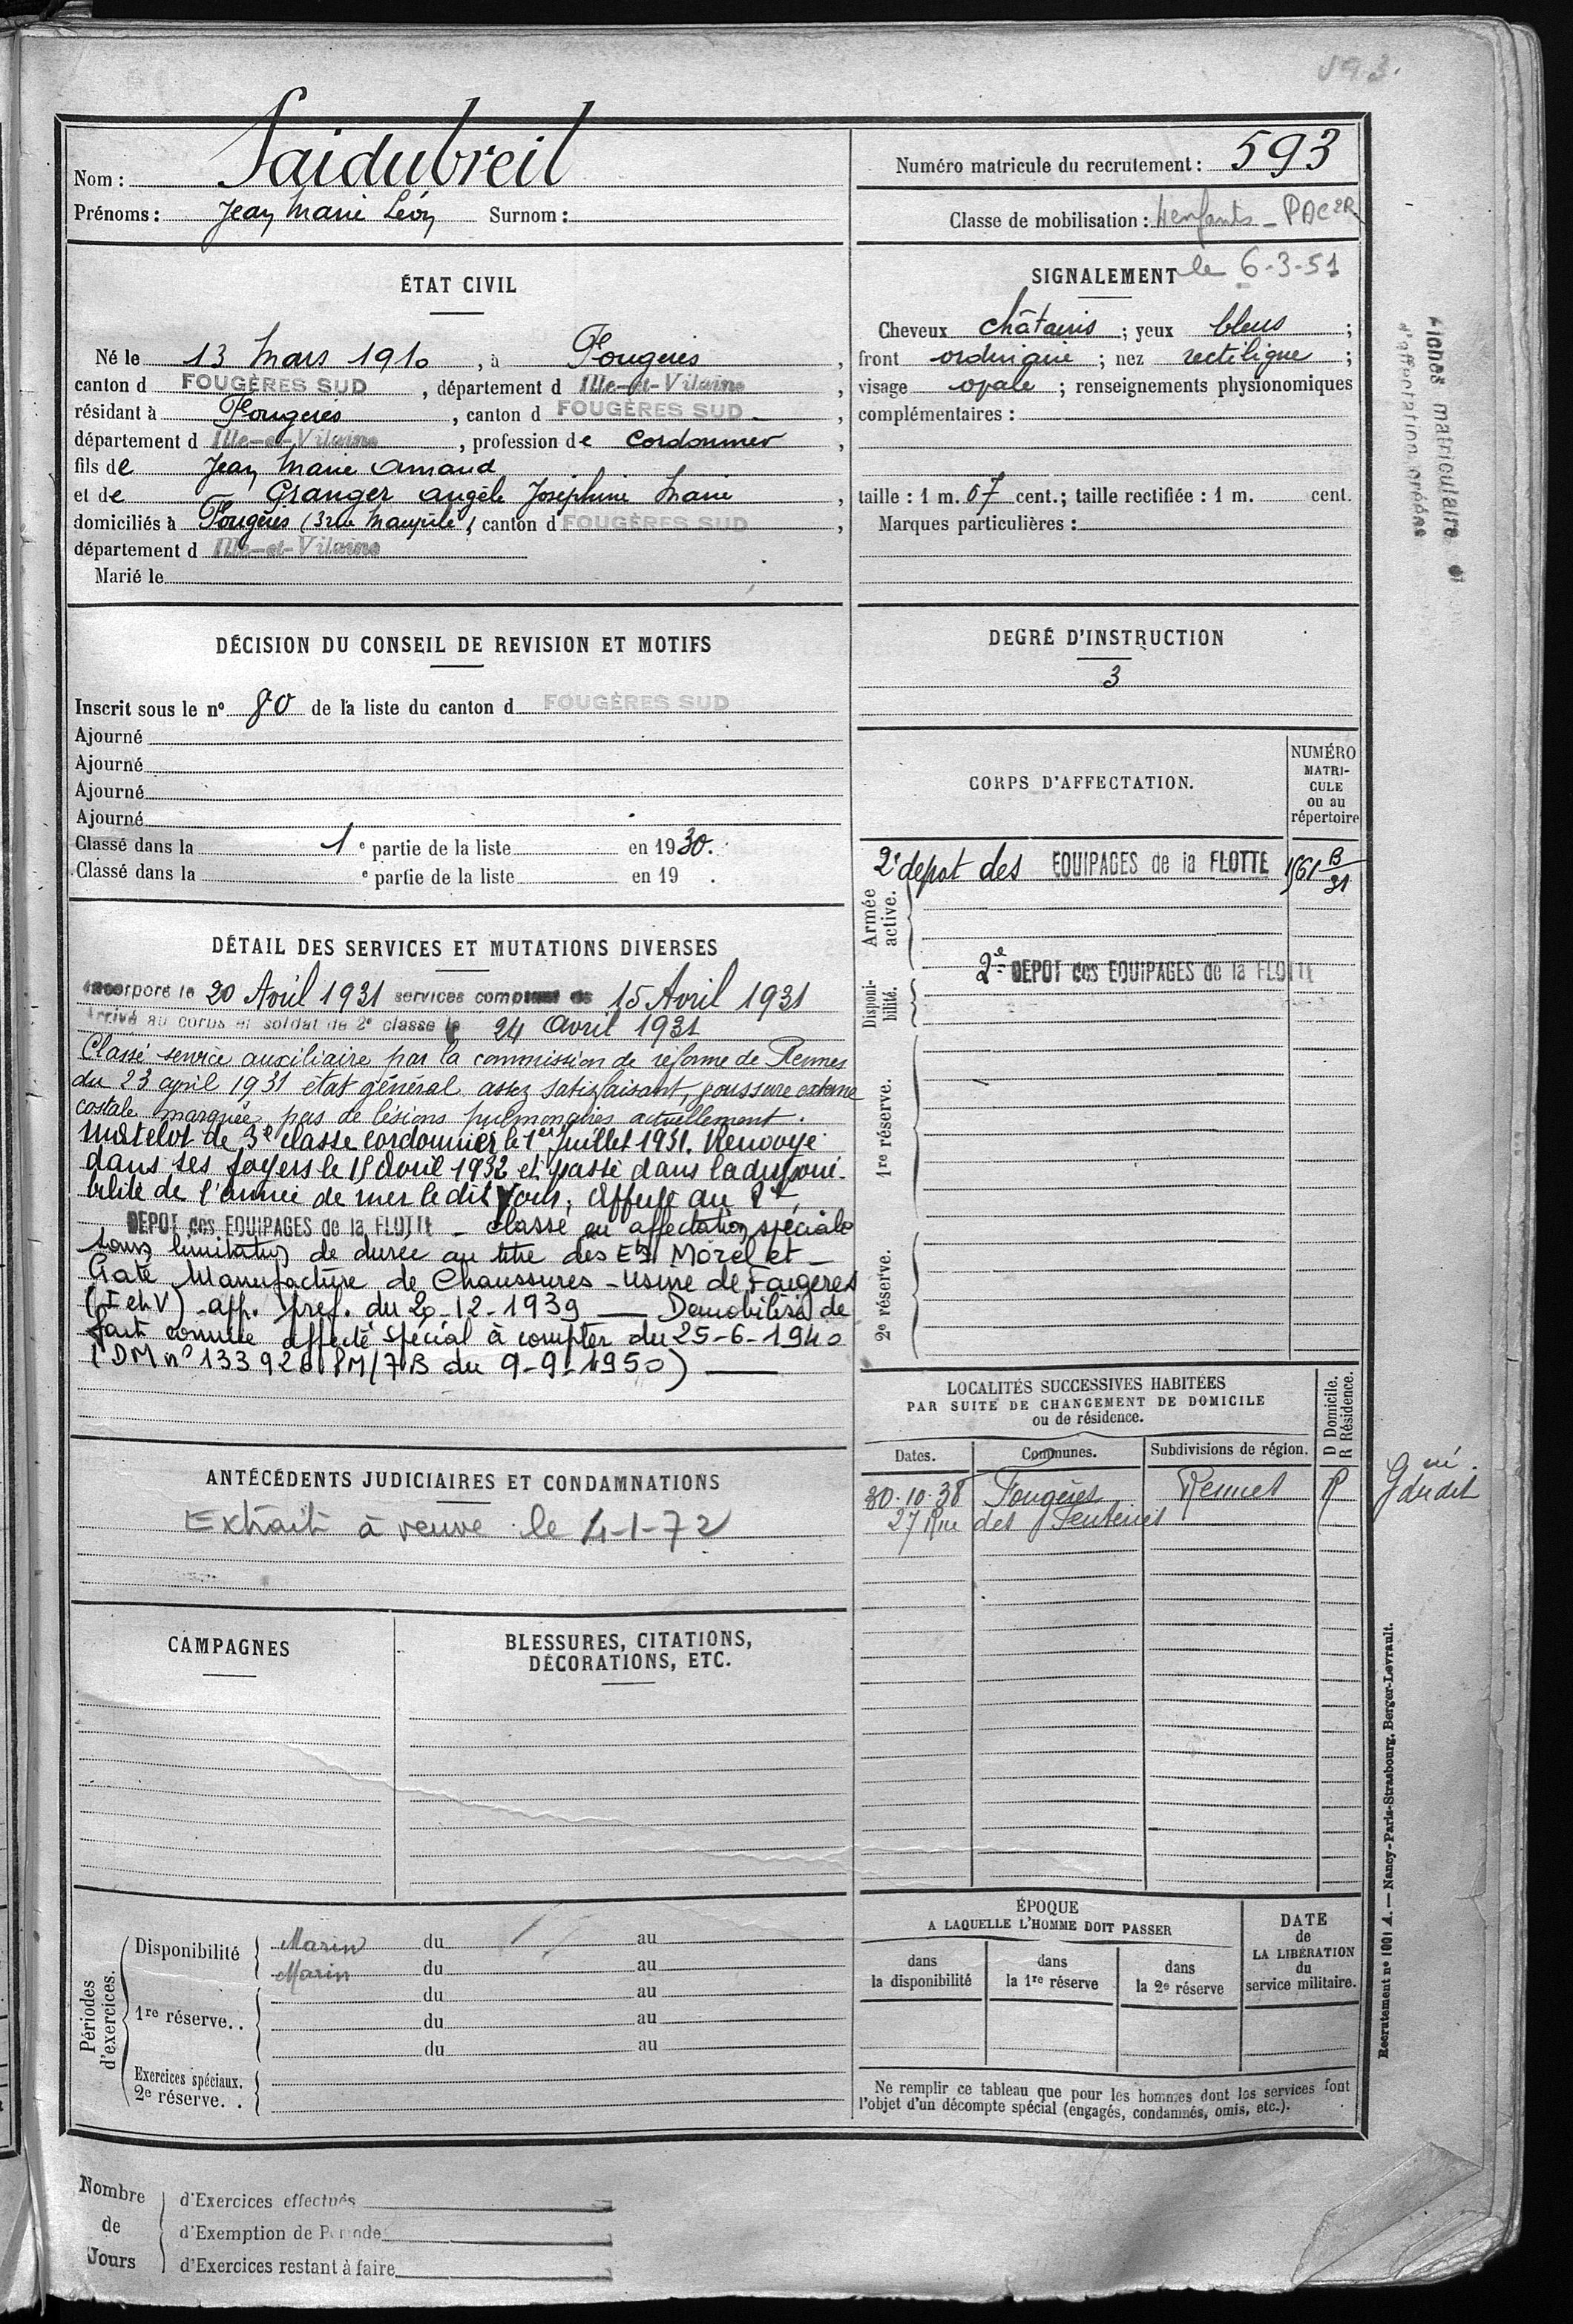 593.
Nom : Saidubreil
Prénoms : Jean Marie Léon Surnom :
ÉTAT CIVIL
Né le 13 Mars 1910, à Fougeres,
canton d FOUGÈRES SUD, département d Ille-et-Vilaine,
résidant à Fougeres, canton d FOUGÈRES SUD,
département d Ille-et-Vilaine, profession de Cordonnier,
fils de Jean Marie Amand
et de Granger Angèle Joséphine Marie,
domiciliés à Fougères (3 rue), canton d FOUGÈRES SUD,
département d Ille-et-Vilaine
Marié le
DÉCISION DU CONSEIL DE REVISION ET MOTIFS
Inscrit sous le nº 80 de la liste du canton d FOUGÈRES SUD
Ajourné
Ajourné
Ajourné
Ajourné
Classé dans la 1 e partie de la liste en 1930.
Classé dans la e partie de la liste en 19 .
DÉTAIL DES SERVICES ET MUTATIONS DIVERSES
Incorporé le 20 Avril 1931 services comptant de 15 Avril 1931
Arrivé au corps et soldat de 2e classe le 24 Avril 1931
Classé service auxiliaire par la commission de réforme de Rennes
du 23 avril 1931 état général assez satisfaisant,
costale marquée, pas de lésions pulmonaires actuellement.
Matelot de 3e classe cordonnier le 1er Juillet 1931. Renvoyé
dans ses foyers le 15 Avril 1932 et passé dans la disponi-
bilité de l'armée de mer le dit jour. Affecté au 2e
DEPOT des EQUIPAGES de la FLOTTE - classé en affectation spéciale
sans limitation de durée au titre des Ets Morel et
Gaté Manufacture de Chaussures - Usine de Fougères
(I et V) - aff. pref. du 20-12-1939 — Demobilisé de
fait comme affecté spécial à compter du 25-6-1940
(DM nº 133920 PM/7B du 9-9-1950) —
ANTÉCÉDENTS JUDICIAIRES ET CONDAMNATIONS
Extrait à veuve le 4-1-72
CAMPAGNES
BLESSURES, CITATIONS,
DÉCORATIONS, ETC.
Périodes d'exercices.
Disponibilité
Marin du au
Marin du au
1re réserve..
du au
du au
du au
Exercices spéciaux.
2e réserve. .
Nombre de Jours
d'Exercices effectués
d'Exemption de Période
d'Exercices restant à faire
Numéro matricule du recrutement : 593
Classe de mobilisation : 4 enfants - PAC 2R
le 6-3-51
SIGNALEMENT
Cheveux châtains ; yeux bleus ;
front ordinaire ; nez rectiligne ;
visage ovale ; renseignements physionomiques
complémentaires :
taille : 1 m. 67 cent.; taille rectifiée : 1 m. cent.
Marques particulières :
DEGRÉ D'INSTRUCTION
3
CORPS D'AFFECTATION.
NUMÉRO
MATRI-
CULE
ou au
répertoire
2e depot des EQUIPAGES de la FLOTTE 1561 B/31
Armée active.
2e DEPOT des EQUIPAGES de la FLOTTE
Disponi-
bilité.
1re réserve.
2e réserve.
LOCALITÉS SUCCESSIVES HABITÉES
PAR SUITE DE CHANGEMENT DE DOMICILE
ou de résidence.
D Domicile.
R Résidence.
Dates.
Communes.
Subdivisions de région.
30.10.38 Fougères Rennes R
27 Rue des
ÉPOQUE
A LAQUELLE L'HOMME DOIT PASSER
dans
la disponibilité
dans
la 1re réserve
dans
la 2e réserve
DATE
de
LA LIBÉRATION
du
service militaire.
Ne remplir ce tableau que pour les hommes dont les services font
l'objet d'un décompte spécial (engagés, condamnés, omis, etc.).
Fiches matriculaire et
d'affectation créées
Recrutement nº 1001 A. — Nancy-Paris-Strasbourg, Berger-Levrault.